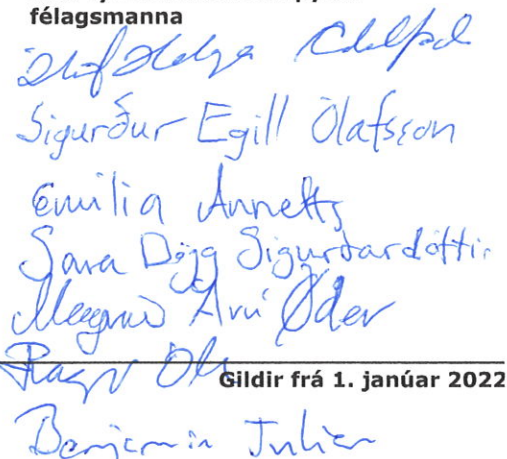 félagsmanna
Ólöf Helga Adolfsd
Sigurður Egill Ólafsson
Emilia Annetts
Sara Dögg Sigurðardóttir
Magnús Árni Øder
Gildir frá 1. janúar 2022
Benjamin Julian